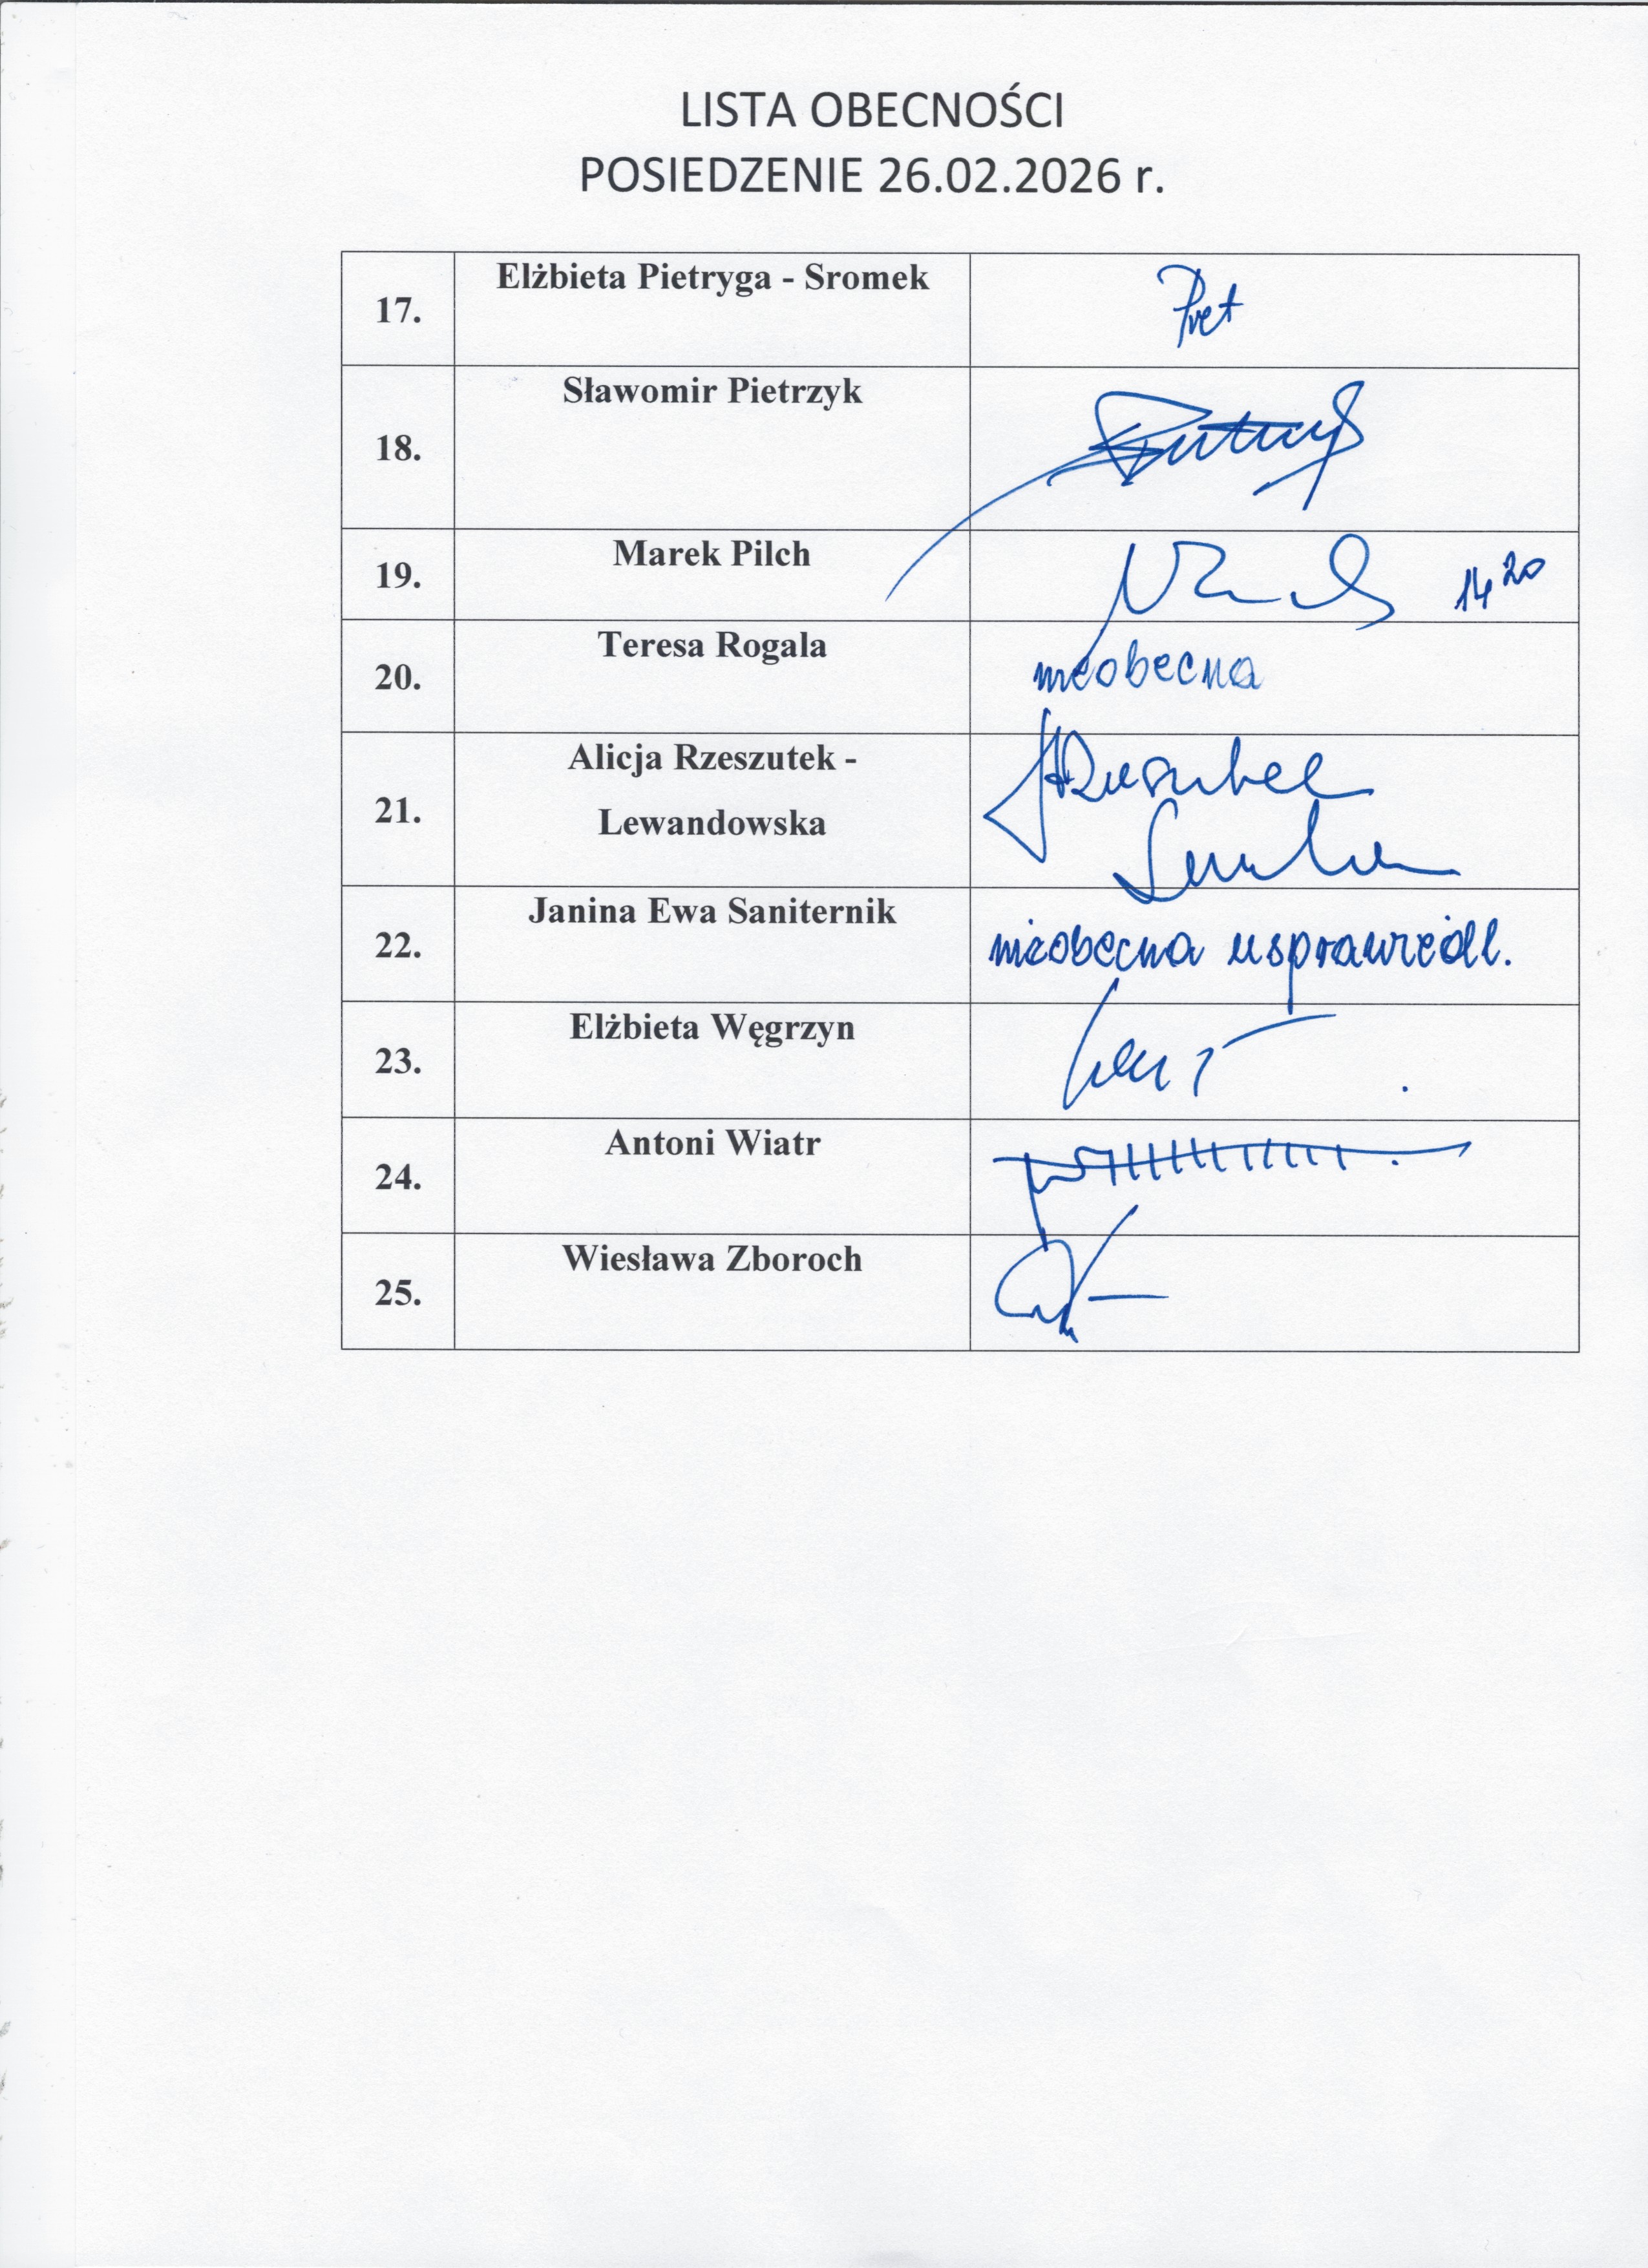 LISTA OBECNOŚCI
POSIEDZENIE 26.02.2026 r.
17. Elżbieta Pietryga - Sromek
18. Sławomir Pietrzyk
19. Marek Pilch 14 20
20. Teresa Rogala nieobecna
21. Alicja Rzeszutek -
Lewandowska
22. Janina Ewa Saniternik nieobecna usprawiedl.
23. Elżbieta Węgrzyn
24. Antoni Wiatr
25. Wiesława Zboroch